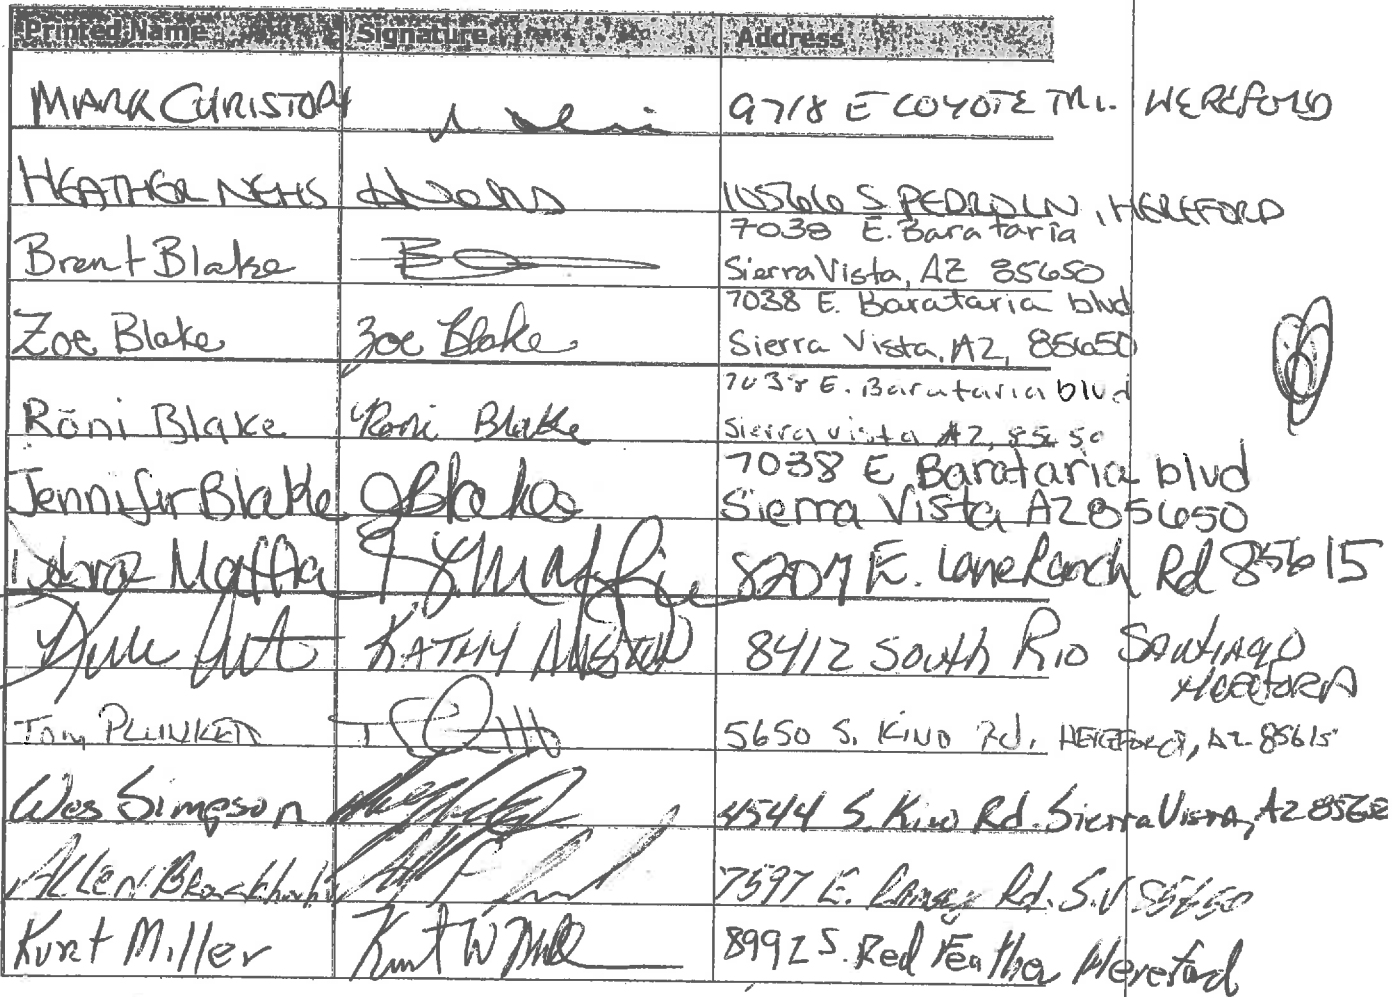 Printed Name Signature Address
MARK CHRISTOPH 9718 E COYOTE TRL. HEREFORD
HEATHER NEHS HNehs 10566 S PEDRO LN, HEREFORD
Brent Blake 7038 E. Barataria
Sierra Vista, AZ 85650
Zoe Blake Zoe Blake 7038 E. Barataria blvd
Sierra Vista, AZ, 85650
Roni Blake Roni Blake 7038 E. Barataria blvd
Sierra vista AZ, 85650
Jennifer Blake JBlake 7038 E Barataria blvd
Sierra Vista AZ 85650
Maffia 8207 E. Lane Ranch Rd 85615
KATHY AUSTIN 8412 South Rio Santiago
Hereford
Tom PLUNKETT 5650 S. KINO Rd. HEREFORD, AZ 85615
Wes Simpson 4544 S. Kino Rd. Sierra Vista, AZ 85650
ALLEN 7597 E. Ramsey Rd. S.V 85650
Kurt Miller Kurt W Mill 8992 S. Red Feather Hereford